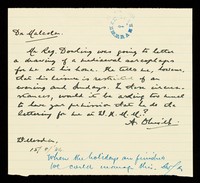 Dr. Malcolm.
Mr. Reg. Dowling was going to letter
a drawing of a mediaeval aerosphere
for me at his home. He tells me, however,
that his leisure is restricted of an
evening and Sundays. In these circum-
stances, would it be asking too much
to have your permission that he do the
lettering for me at W.H.M.M.?
A.
15/9/
When the holidays are finished
we could manage this.